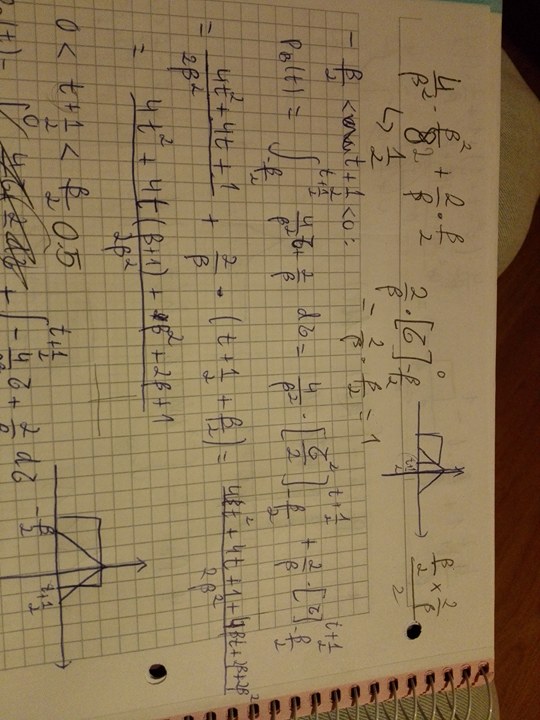 4/β² · β²/8 2 + 2/β · β/2
↳ 1/2
2/β · [τ]_{-β/2}^{0}
= 2/β · β/2 = 1
t+1/2
β/2 × 2/β / 2
- β/2 < t+1/2 < 0 :
P_B(t) = ∫_{-β/2}^{t+1/2} 4/β² τ + 2/β dτ = 4/β² · [τ²/2]_{-β/2}^{t+1/2} + 2/β · [τ]_{-β/2}^{t+1/2}
= (4t² + 4t + 1)/(2β²) + 2/β · (t + 1/2 + β/2) = (4t² + 4t + 1 + 4βt + 2β + 2β²)/(2β²)
= (4t² + 4t(β+1) + β² + 2β + 1)/(2β²)
0 < t+1/2 < β/2 0.5
-β/2 t+1/2
(t) = ∫^{0} + ∫^{t+1/2} -4/β² τ + 2/β dτ